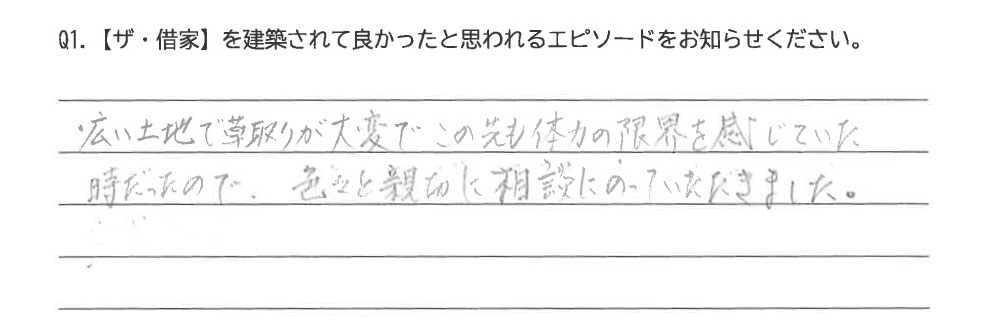 Q1.【ザ・借家】を建築されて良かったと思われるエピソードをお知らせください。
・広い土地で草取りが大変でこの先も体力の限界を感じていた
時だったので、色々と親切に相談にのっていただきました。